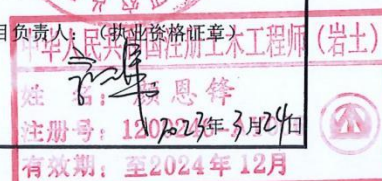 目负责人：（执业资格证章）
中华人民共和国注册土木工程师（岩土）
姓 名： 恩锋
2023年 3月24日
注册号：
有效期：至2024年 12月